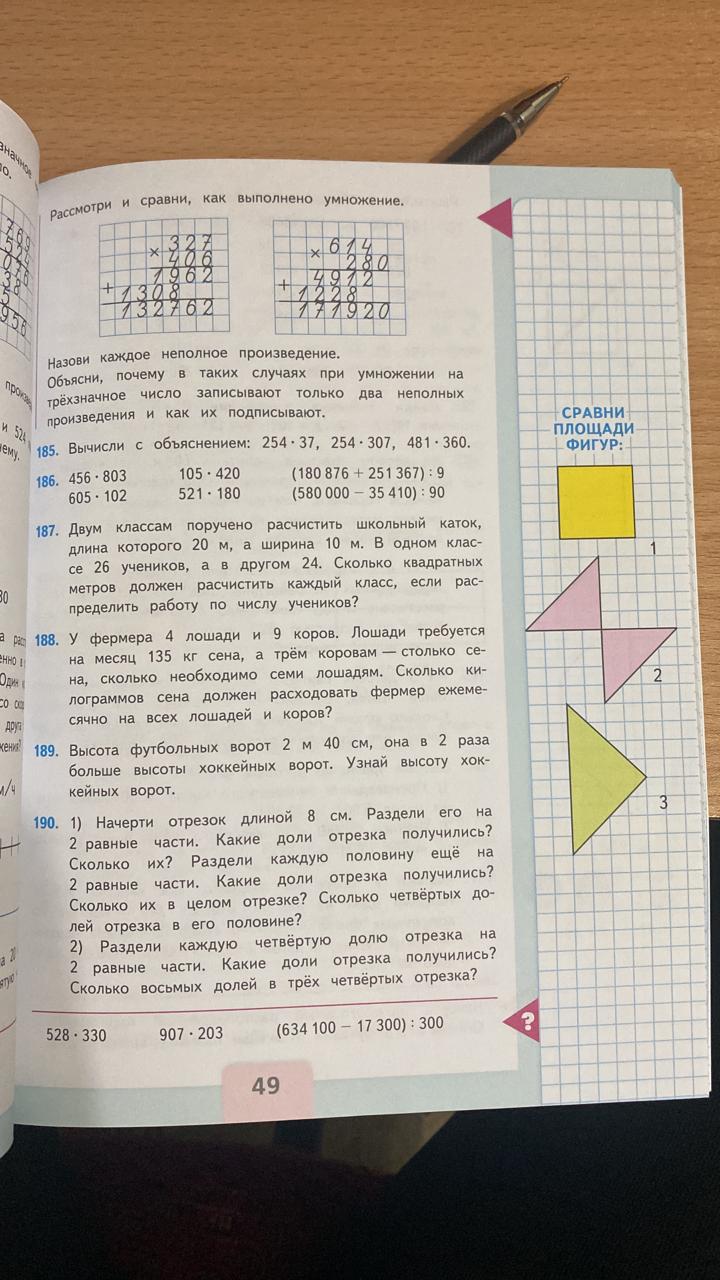 значное
ло.
Рассмотри и сравни, как выполнено умножение.
× 327
406
1962
+ 1308
132762
× 614
280
4912
+ 1228
171920
Назови каждое неполное произведение.
Объясни, почему в таких случаях при умножении на
трёхзначное число записывают только два неполных
произведения и как их подписывают.
185. Вычисли с объяснением: 254 · 37, 254 · 307, 481 · 360.
186. 456 · 803 105 · 420 (180 876 + 251 367) : 9
605 · 102 521 · 180 (580 000 − 35 410) : 90
187. Двум классам поручено расчистить школьный каток,
длина которого 20 м, а ширина 10 м. В одном клас-
се 26 учеников, а в другом 24. Сколько квадратных
метров должен расчистить каждый класс, если рас-
пределить работу по числу учеников?
188. У фермера 4 лошади и 9 коров. Лошади требуется
на месяц 135 кг сена, а трём коровам — столько се-
на, сколько необходимо семи лошадям. Сколько ки-
лограммов сена должен расходовать фермер ежеме-
сячно на всех лошадей и коров?
189. Высота футбольных ворот 2 м 40 см, она в 2 раза
больше высоты хоккейных ворот. Узнай высоту хок-
кейных ворот.
190. 1) Начерти отрезок длиной 8 см. Раздели его на
2 равные части. Какие доли отрезка получились?
Сколько их? Раздели каждую половину ещё на
2 равные части. Какие доли отрезка получились?
Сколько их в целом отрезке? Сколько четвёртых до-
лей отрезка в его половине?
2) Раздели каждую четвёртую долю отрезка на
2 равные части. Какие доли отрезка получились?
Сколько восьмых долей в трёх четвёртых отрезка?
528 · 330 907 · 203 (634 100 − 17 300) : 300
?
49
СРАВНИ
ПЛОЩАДИ
ФИГУР:
1
2
3